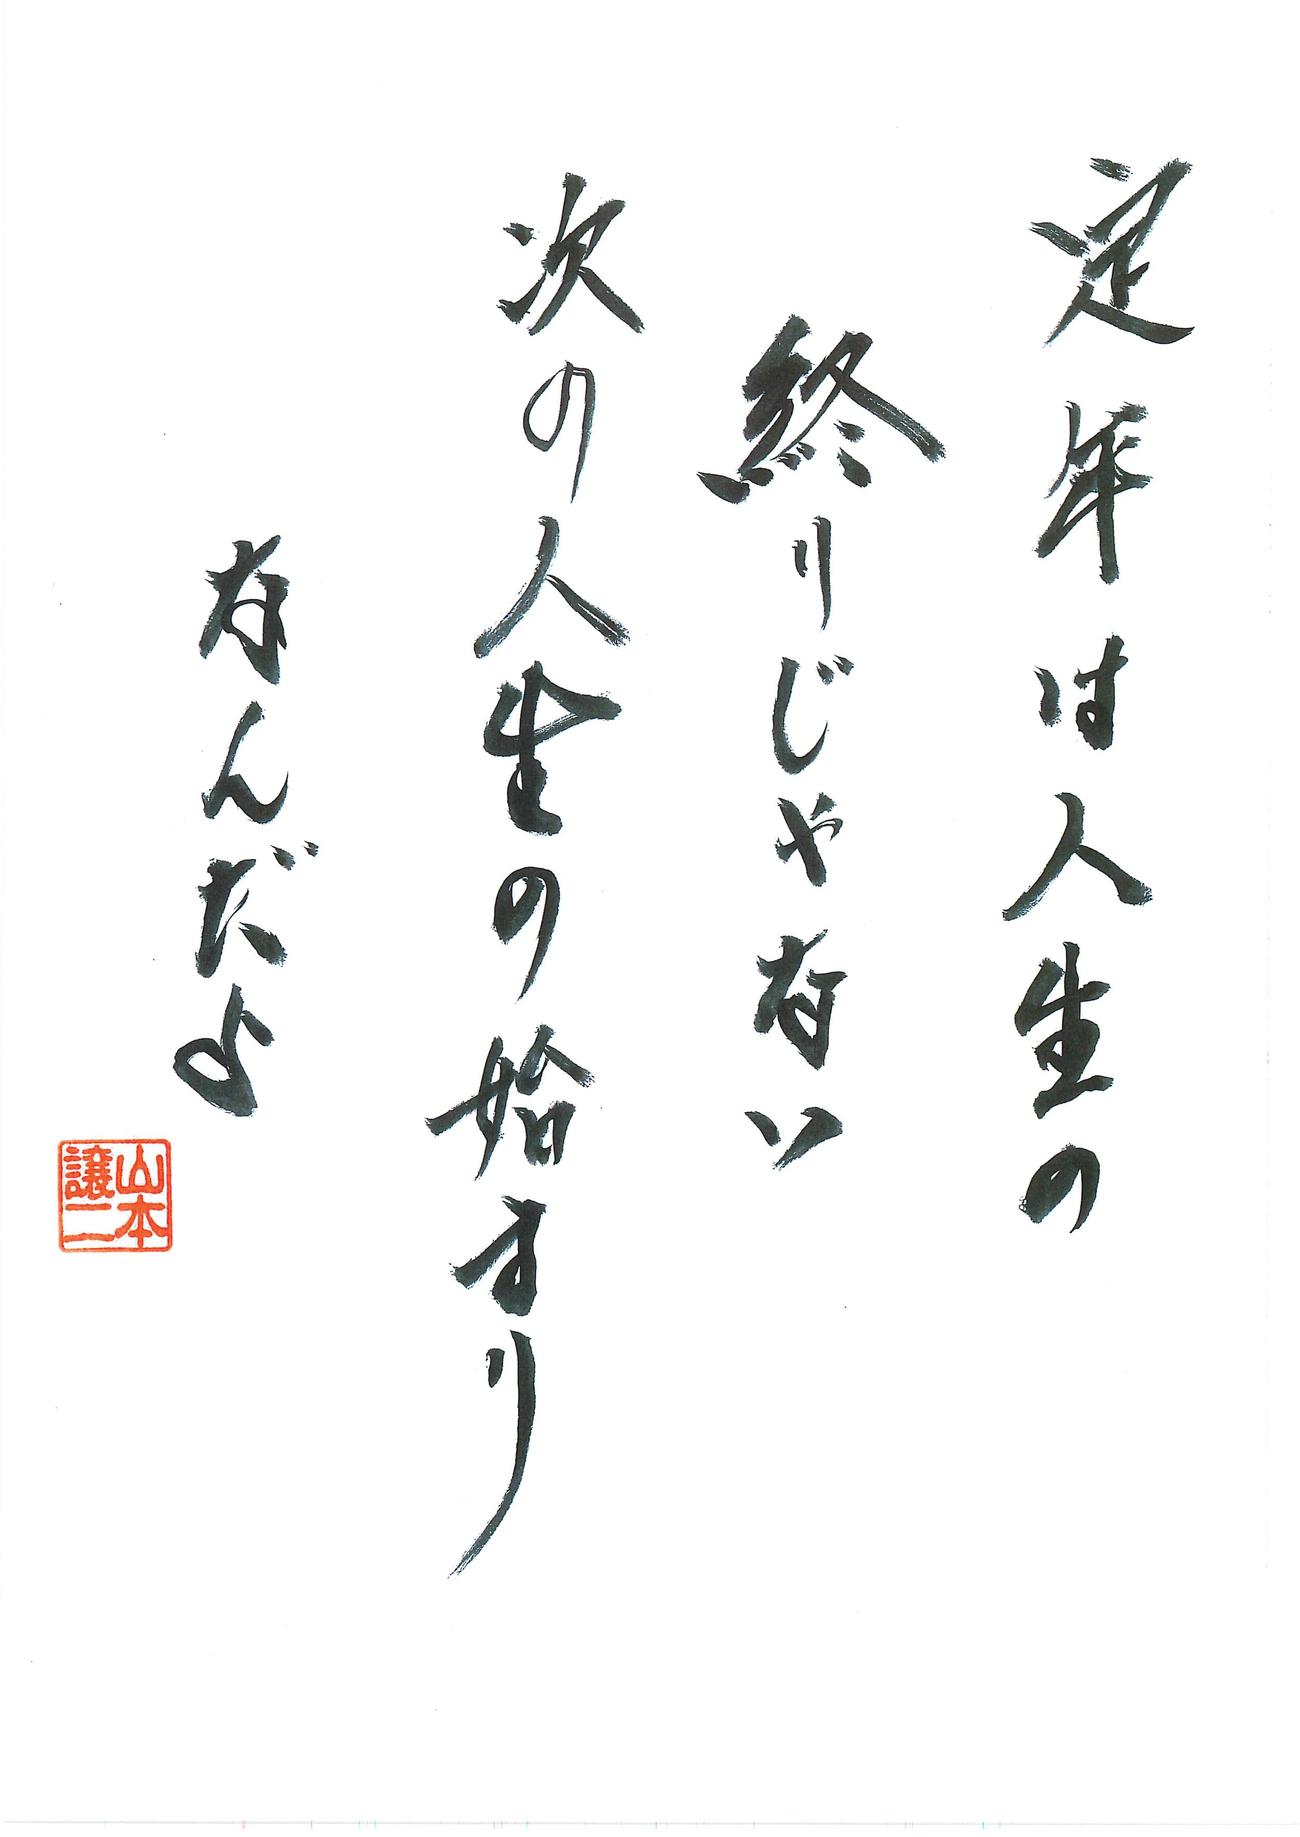 定年は人生の
終りじゃない
次の人生の始まり
なんだよ
山本
譲二